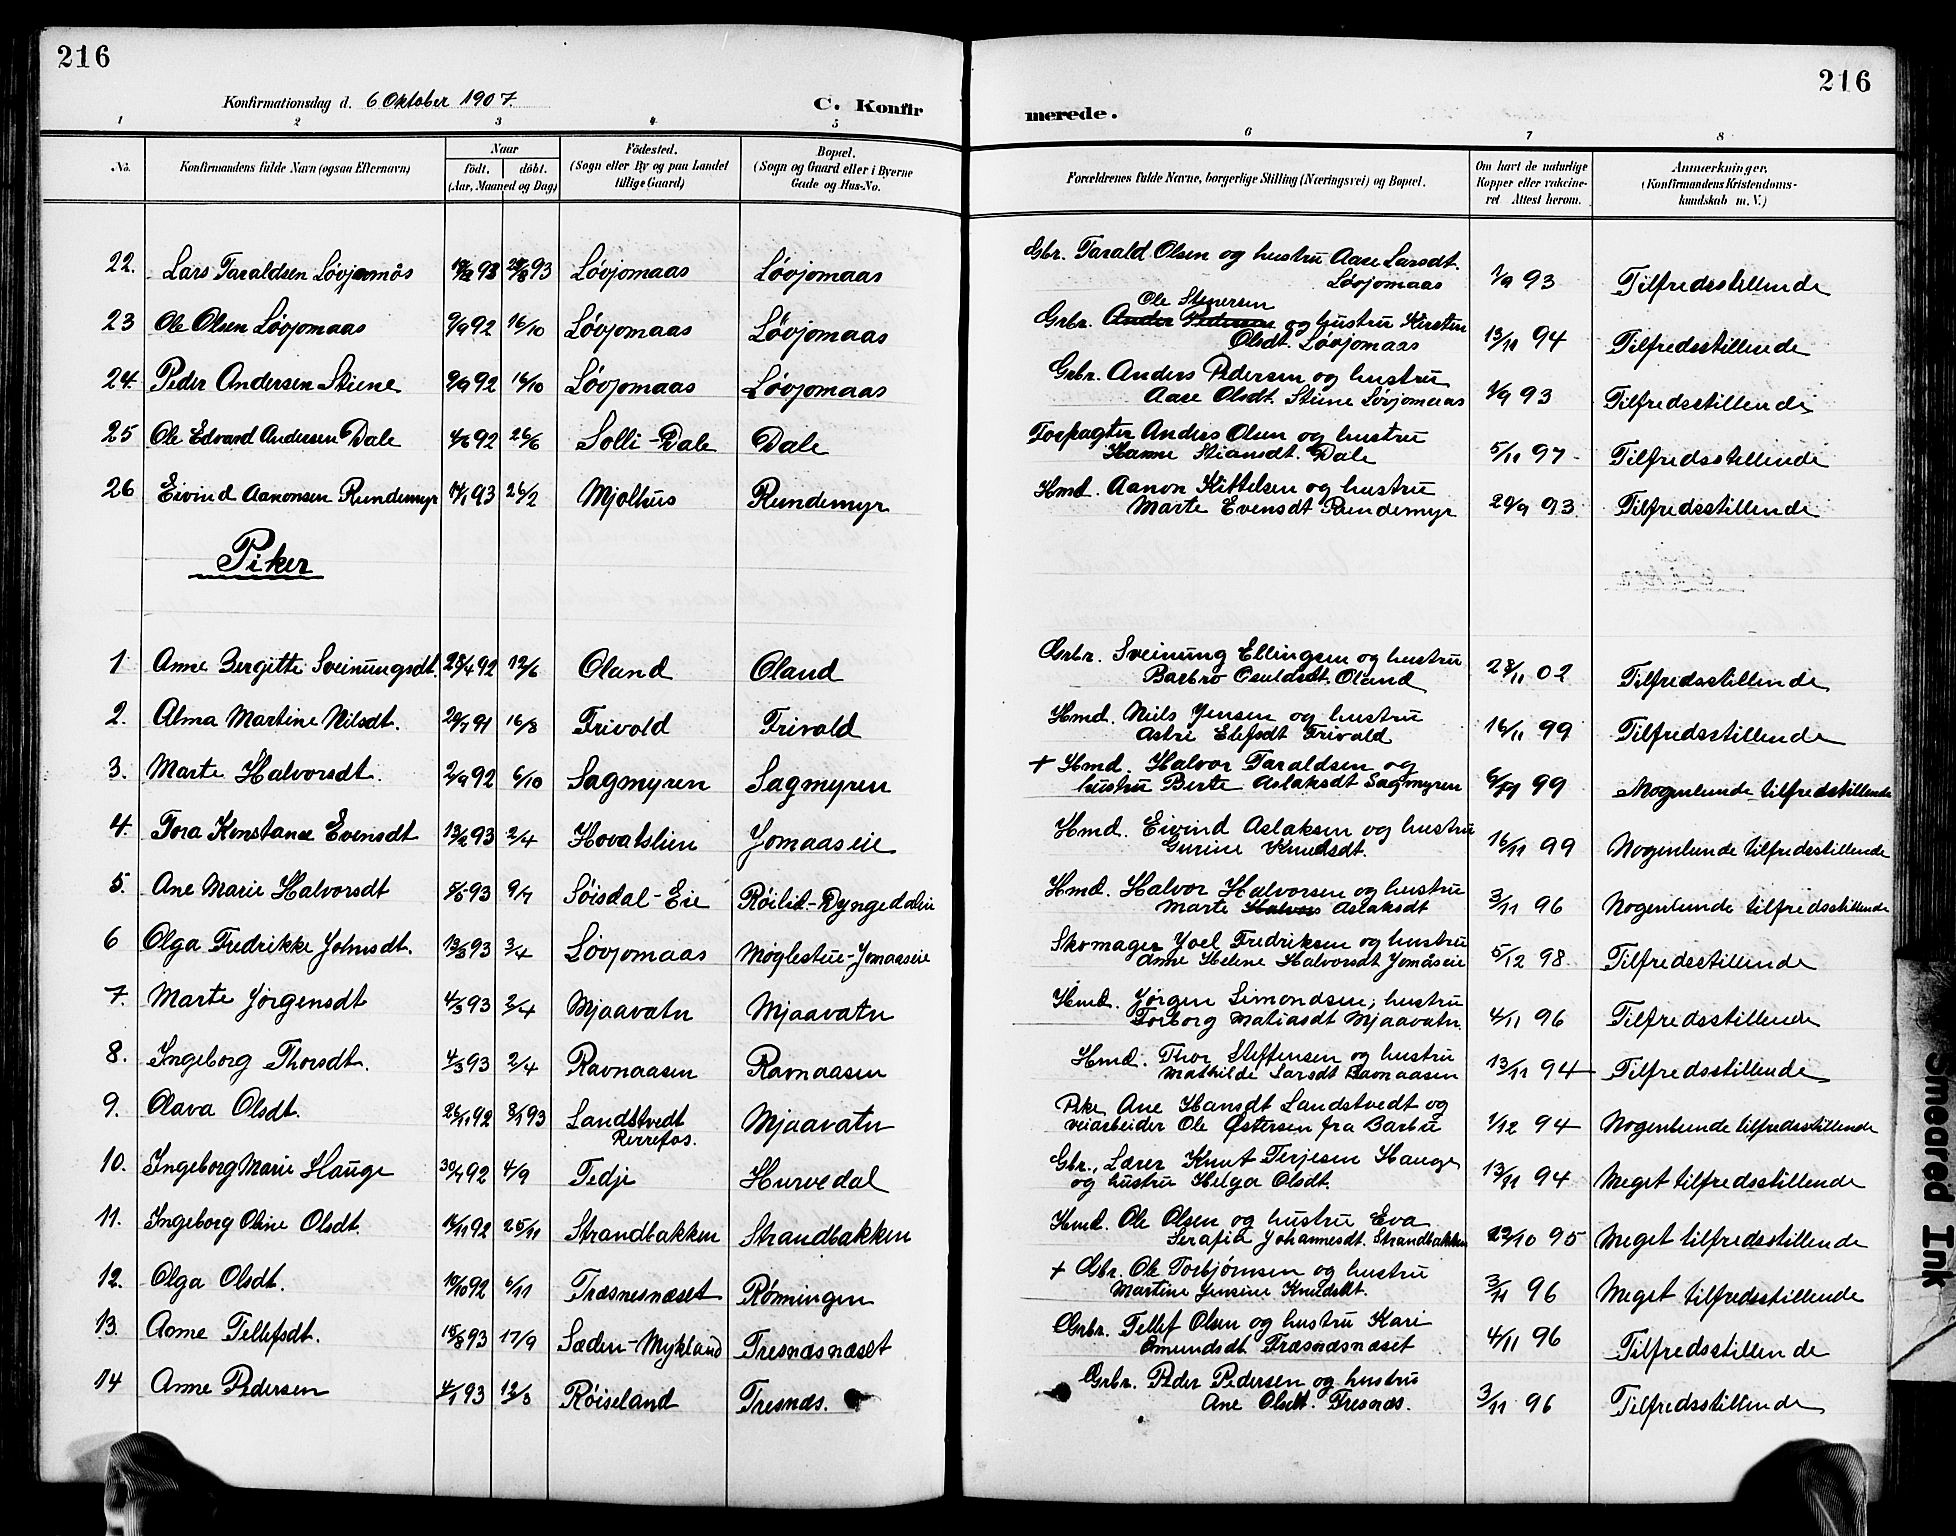 216
216
Konfirmationsdag d. 6 Oktober 1907.
C. Konfirmerede.
1 2 3 4 5 6 7 8
No. Konfirmandens fulde Navn (ogsaa Efternavn) Naar født. døbt. (Aar, Maaned og Dag) Fødested. (Sogn eller By og paa Landet tillige Gaard) Bopæl. (Sogn og Gaard eller i Byerne Gade og Hus-No. Forældrenes fulde Navne, borgerlige Stilling (Næringsvei) og Bopæl. Om havt de naturlige Kopper eller vakcineret Attest herom. Anmerkninger. (Konfirmandens Kristendomskundskab m. V.)
22. Lars Taraldsen Løvjomås 93 93 Løvjomaas Løvjomaas Gbr. Tarald Olsen og hustru Aase Larsdt. Løvjomaas 1/9 93 Tilfredsstillende
23 Ole Olsen Løvjomaas 9/9 92 16/10 Løvjomaas Løvjomaas Grbr. Ander Pedersen Ole Stenersen og hustru Kirsten Olsdt. Løvjomaas 13/11 94 Tilfredsstillende
24. Peder Andersen Stiene 9/9 92 16/10 Løvjomaas Løvjomaas Grbr. Anders Pedersen og hustru Aase Olsdt. Stiene Løvjomaas 1/9 93 Tilfredsstillende
25 Ole Edvard Andersen Dale 4/6 92 26/6 Solli-Dale Dale Forpagter Anders Olsen og hustru Hanne Stiansdt. Dale 5/11 97 Tilfredsstillende
26 Eivind Aanonsen Rundemyr 14/1 93 26/2 Mjølhus Rundemyr Hmd. Aanon Kittelsen og hustru Marte Evensdt Rundemyr 20/9 93 Tilfredsstillende
Piker
1 Anne Bergitte Sveinungsdt. 28/4 92 12/6 Oland Oland Grbr. Sveinung Ellingsen og hustru Barbro Osuldsdt. Oland 28/11 02 Tilfredsstillende
2. Alma Martine Nilsdt. 20/7 91 16/8 Frivold Frivold Hmd. Niels Jensen og hustru Astri Elefsdt Frivold 16/11 99 Tilfredsstillende
3. Marte Halvorsdt. 2/9 92 6/10 Sagmyren Sagmyren + Hmd. Halvor Taraldsen og hustru Berte Aslaksdt Sagmyren 99 Nogenlunde tilfredsstillende
4. Tora Konstance Evensdt 13/2 93 2/4 Hovatslien Jomaaseie Hmd. Eivind Aslaksen og hustru Gurine Knudsdt. 16/11 99 Nogenlunde tilfredsstillende
5. Ane Marie Halvorsdt 8/5 93 9/7 Søisdal-Eie Røilid-Dyngedalen Hmd. Halvor Halvorsen og hustru Marte Halvors Aslaksdt 3/11 96 Nogenlunde tilfredsstillende
6 Olga Fredrikke Johnsdt. 13/3 93 3/4 Løvjomaas Møglestue-Jomaaseie Skomager Joel Fredriksen og hustru Anne Helene Halvorsdt Jomåseie 5/12 98. Tilfredsstillende
7. Marte Jørgensdt 4/3 93 2/4 Mjaavatn Mjaavatn Hmd. Jørgen Simondsen, hustru Torborg Matiasdt Mjaavatn. 4/11 96 Tilfredsstillende
8. Ingeborg Thorsdt. 4/3 93 2/4 Ravnaasen Ravnaasen Hmd. Thor Steffensen og hustru Mathilde Larsdt Ravnaasen 13/11 94 Tilfredsstillende
9. Olava Olsdt. 26/11 92 8/1 93 Landstvedt Rerrefos. Mjaavatn Pike Ane Hansdt Landstvedt og veiarbeider Ole Østersen fra Barbu 1/12 94 Nogenlunde tilfredsstillende
10. Ingeborg Marie Hauge 30/7 92 4/9 Tedje Hurvedal Gbr., Lærer Knut Terjesen Hauge og hustru Helga Olsdt. 13/11 94 Meget tilfredsstillende
11. Ingeborg Oline Olsdt. 92 25/11 Strandbakken Strandbakken Hmd. Ole Olsen og hustru Eva Serafia Johannesdt. Strandbakken 22/10 95 Meget tilfredsstillende
12. Olga Olsdt. 10/10 92 6/11 Træsnesnæset Rønningen + Gbr. Ole Torbjørnsen og hustru Martine Jensine Knudsdt. 3/11 96 Meget tilfredsstillende
13. Aome Tellefsdt. 15/8 93 17/9 Sæden-Mykland Tresnæsnæset Grbr. Tellef Olsen og hustru Kari Omundsdt Træsnæsnæset 4/11 96 Tilfredsstillende
14 Anne Pedersen 4/1 93 12/3 Røiseland Tresnæs. Grbr. Peder Pedersen og hustru Ane Olsdt. Tresnæs. 3/11 96 Tilfredsstillende
Smeared Ink